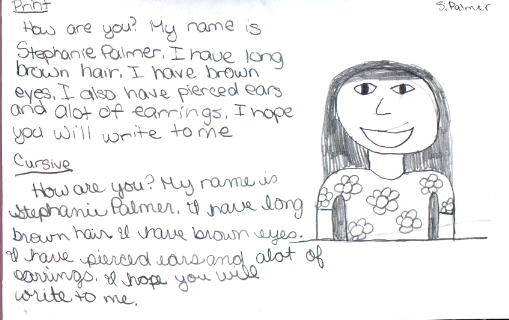 Print
S. Palmer
How are you? My name is
Stephanie Palmer. I have long
brown hair. I have brown
eyes. I also have pierced ears
and alot of earrings. I hope
you will write to me
Cursive
How are you? My name is
Stephanie Palmer. I have long
brown hair I have brown eyes.
I have pierced ears and alot of
earrings. I hope you will
write to me.